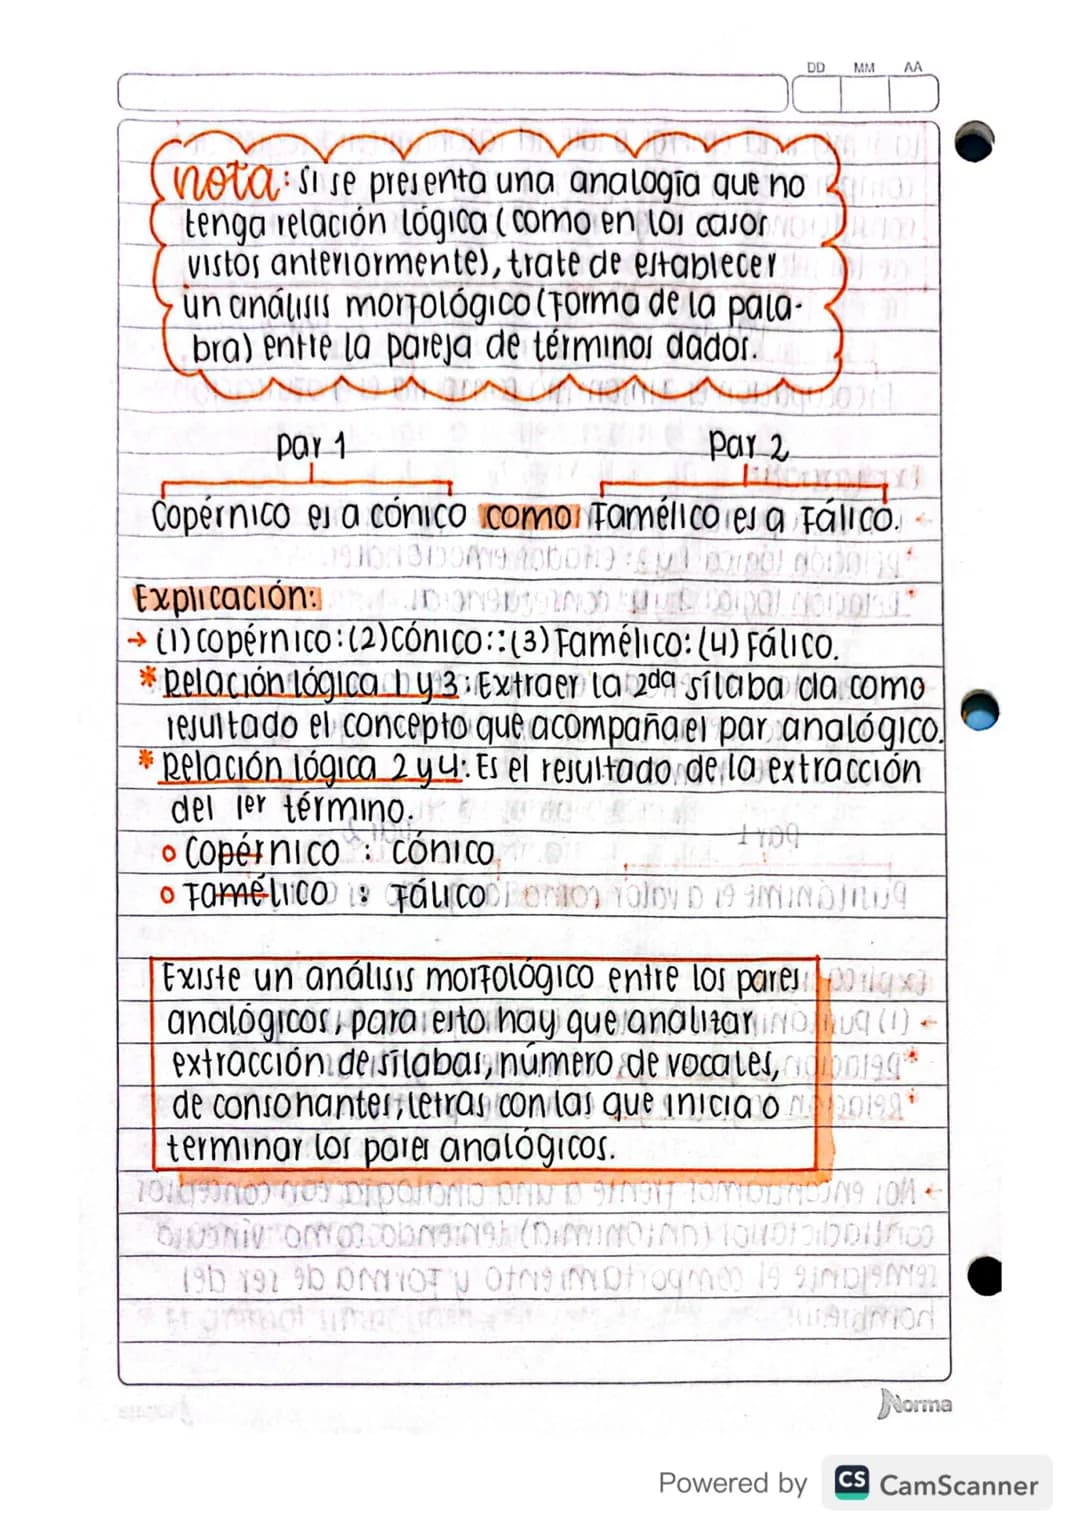 DD MM AA
nota: si se presenta una analogía que no
tenga relación lógica (como en los casos
vistos anteriormente), trate de establecer
un análisis morfológico (forma de la pala-
bra) entre la pareja de términos dados.
par 1 par 2
Copérnico es a cónico como Famélico es a Fálico.
Explicación:
→ (1) copérnico:(2) cónico::(3) Famélico:(4) Fálico.
* Relación lógica 1 y 3: Extraer la 2da sílaba da como
resultado el concepto que acompaña el par analógico.
* Relación lógica 2 y 4: Es el resultado de la extracción
del 1er término.
o Copérnico : cónico
o Famélico : Fálico
Existe un análisis morfológico entre los pares
analógicos, para esto hay que analizar
extracción de sílabas, número de vocales,
de consonantes, letras con las que inicia o
terminar los pares analógicos.
Norma
Powered by CS CamScanner